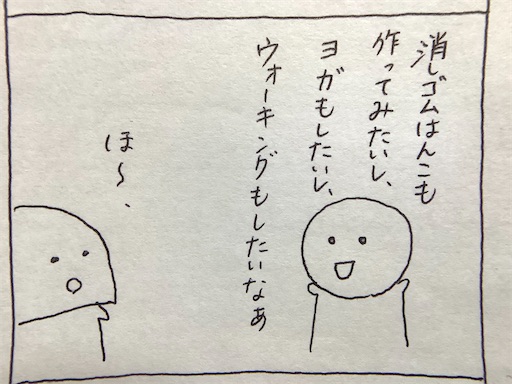 消しゴムはんこも
作ってみたいし、
ヨガもしたいし、
ウォーキングもしたいなぁ
ほ〜、